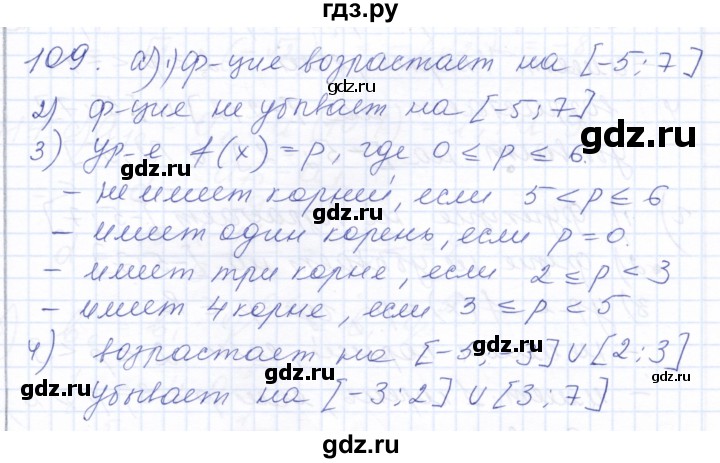 гдз.ру
109. а) 1) ф-ция возрастает на [-5; 7]
2) ф-ция не убывает на [-5; 7]
gdz.ru
3) Ур-е f(x) = p, где 0 ≤ p ≤ 6.
gdz.ru
- не имеет корней, если 5 < p ≤ 6
gdz.ru
- имеет один корень, если p = 0.
- имеет три корне, если 2 ≤ p < 3
gdz.ru
- имеет 4 корне, если 3 ≤ p < 5
gdz.ru
4) возрастает на [-5; -3] U [2; 3]
gdz.ru gdz.ru
убывает на [-3; 2] U [3; 7]
gdz.ru